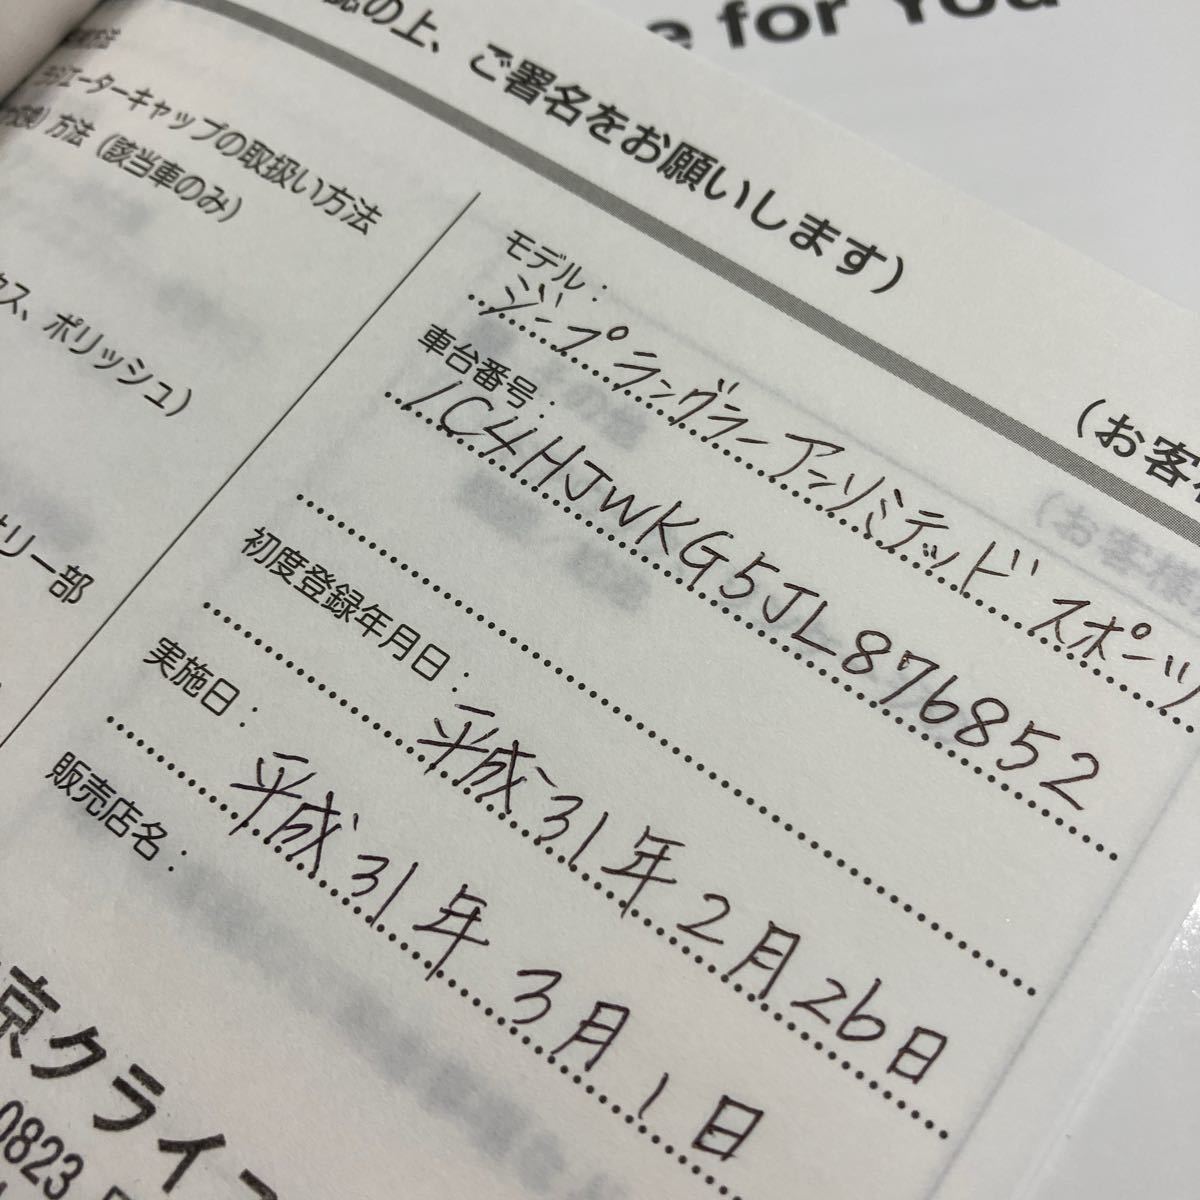 e for You
の上、ご署名をお願いします)
方法
ジエーターキャップの取扱い方法
方法 (該当車のみ)
クス、ポリッシュ)
リー部
(お客様
モデル:
ジープ ラングラー アンリミテッド スポーツ
車台番号:
1C4HJWKG5JL876852
初度登録年月日:
平成31年2月26日
実施日:
平成31年3月1日
販売店名:
京クライ
0823